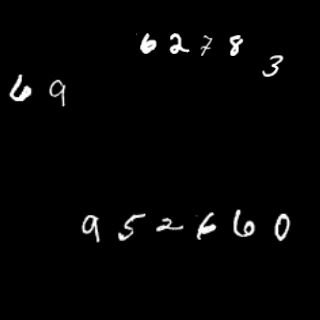 6 2 7 8 3
6 9
9 5 2 6 6 0